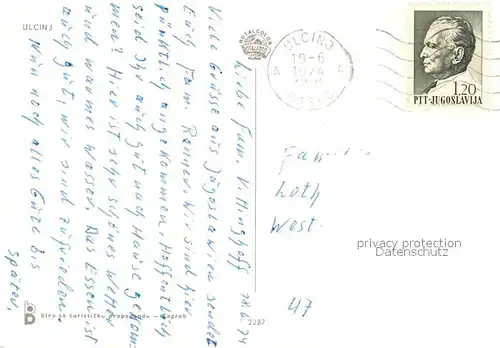 ULCINJ
28.6.74
Liebe Fam. V. Hinghoff
Viele Grüsse aus Jugoslawien sendet
Euch Fam. Renner. Wir sind hier
pünktlich angekommen. Hoffentlich
seid Ihr auch gut nach Hause gekom-
men? Hier ist sehr schönes Wetter
und warmes Wasser. Das Essen ist
auch gut, wir sind zufrieden.
Nun noch alles Gute bis
später.
Biro za turističku propagandu — Zagreb
2287
ULCINJ
1974
1,20
PTT-JUGOSLAVIJA
Fam
Loth
West.
47
privacy protection
Datenschutz